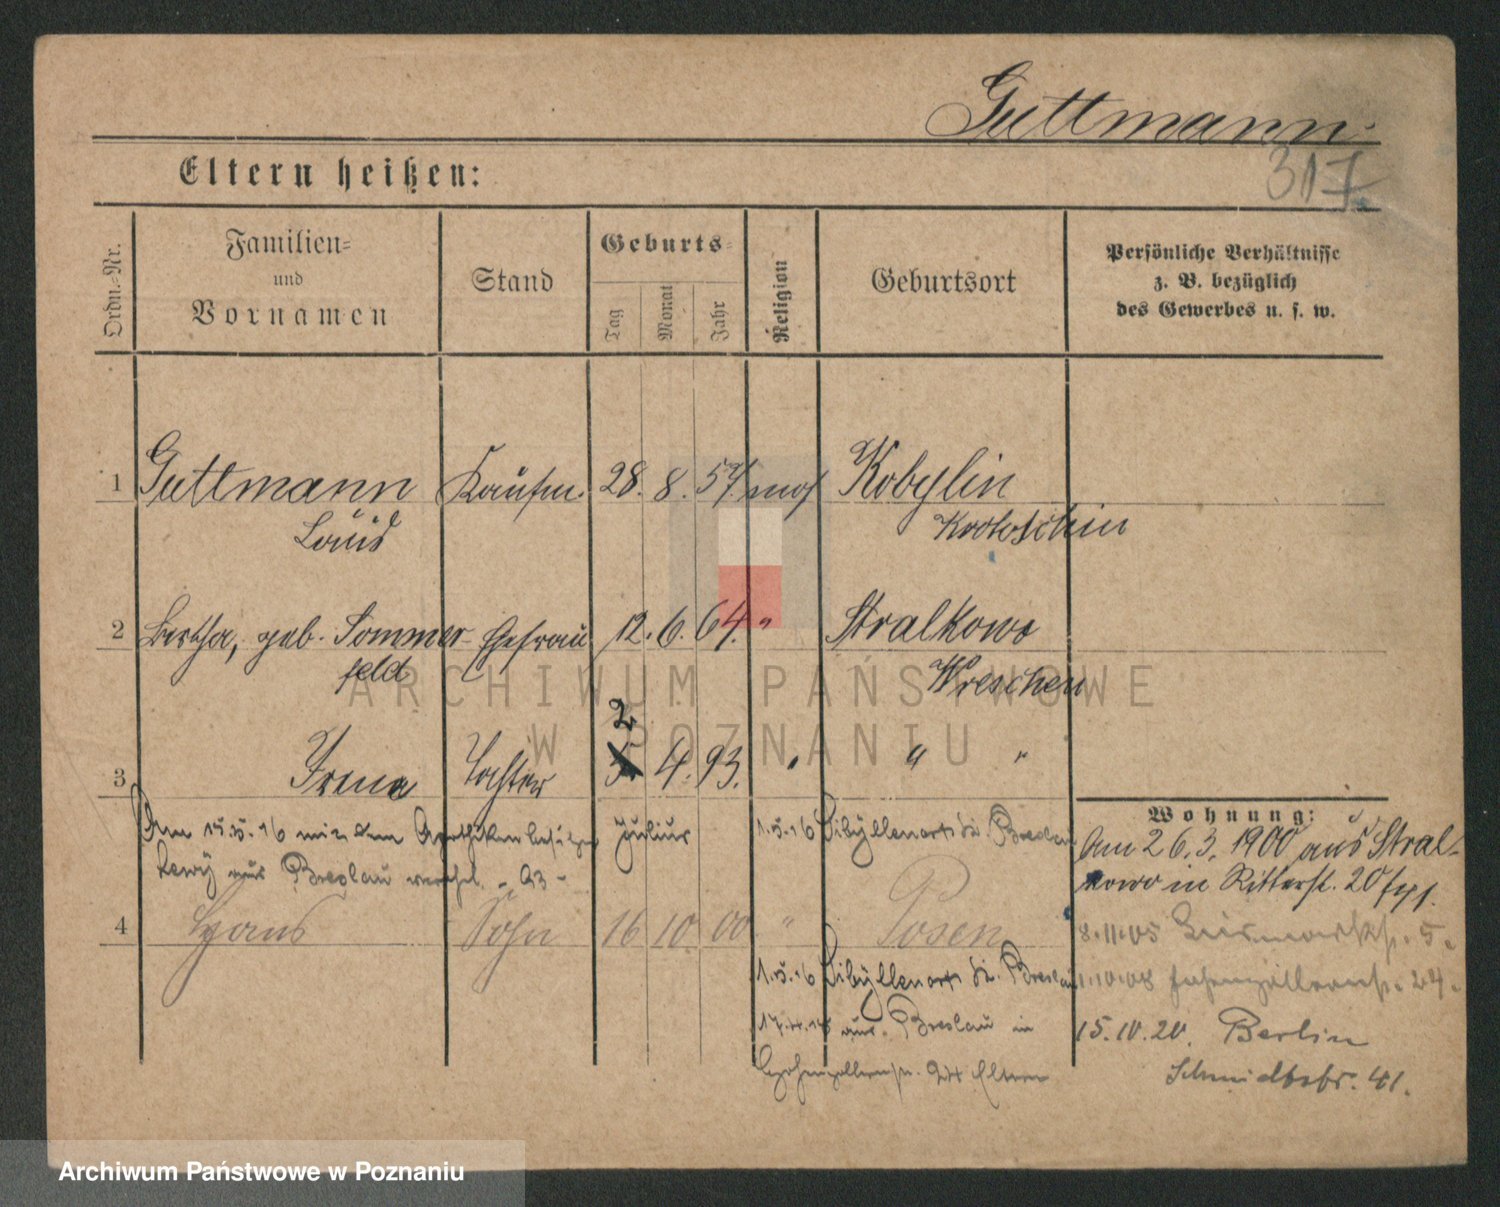 Guttmann.
317
Eltern heißen:
Ordn.-Nr.
Familien-
und
Vornamen
Stand
Geburts-
Tag
Monat
Jahr
Religion
Geburtsort
Persönliche Verhältnisse
z. B. bezüglich
des Gewerbes u. s. w.
1 Guttmann Kaufm. 28. 8. 57. mos Kobylin
Louis Krotoschin
2 Bertha, geb. Sommer- Ehefrau 12. 6. 64. " Stralkowo
feld Wreschen
2
3 Irene Tochter 4. 93. " " "
Wohnung:
Am 15.5.16 mit dem Apothekenbesitzer Julius 1.5.16 Sibyllenort bei Breslau
Lewy aus Breslau verehel. - 93 -
Am 26.3.1900 aus Stral-
kowo in Ritterst. 20
4 Hans Sohn 16 10 00 " Posen
8.11.05 Bismarckst. 5.
1.5.16 Sibyllenort bei Breslau
1.10.08 Hohenzollernst. 24.
aus Breslau in
Hohenzollernst. 24 Eltern
15.10.20. Berlin
Schmidtstr. 41.
ARCHIWUM PAŃSTWOWE
W POZNANIU
Archiwum Państwowe w Poznaniu